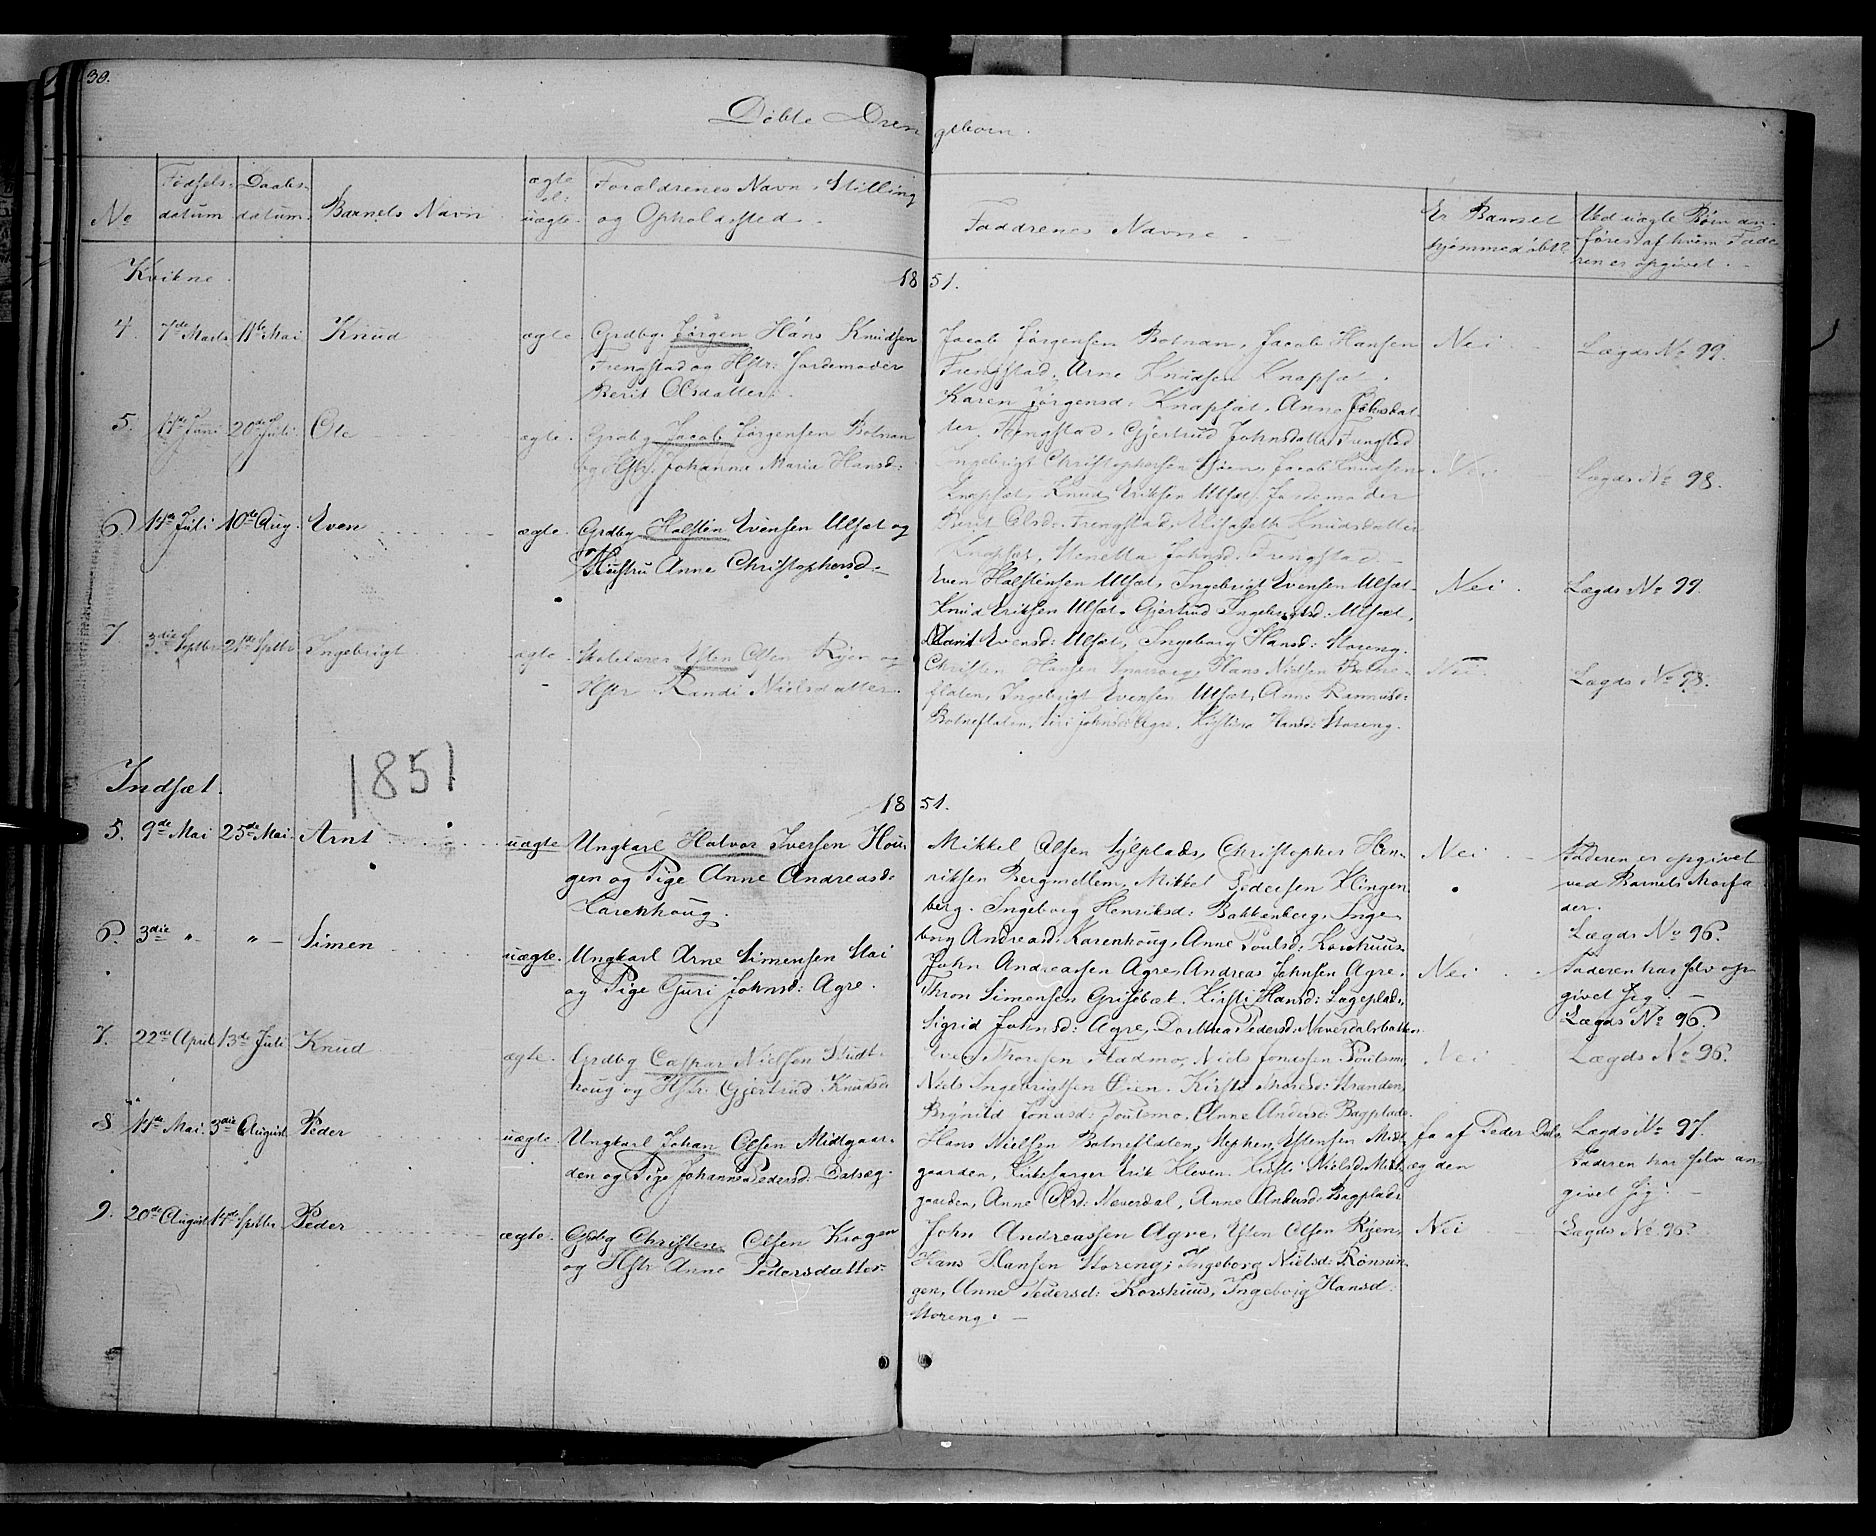 30.
Døbte Drengebørn.
No
Fødsels-
datum
Daabs-
datum.
Barnets Navn
ægte
el:
uægte.
Forældrenes Navn, Stilling
og Opholdssted.
Faddrenes Navne.
Er Barnet
hjemmedøbt?
Ved uægte Børn an-
føres af hvem Fade-
ren er opgivet.
Kvikne.
1851.
4.
7de Marts
11te Mai
Knud
ægte
Grdbg. Jørgen Hans Knudsen
Frengstad og Hstr: Jordemoder
Berit Olsdatter.
Jacob Jørgensen Botnan, Jacob Hansen
Frengstad, Arne Knudsen Knapsæt.
Karen Jørgensd: Knapsæt, Anne Johnsdat-
ter Frengstad, Gjertrud Johnsdattr Frengstad
Nei
Lægds No 99.
5.
Juni
20de Juli
Ole
ægte.
Grdbg Jacob Jørgensen Botnan
og Hstr. Johanna Maria Hansd:
Ingebrigt Christophersen Moen, Jacob Knudsen
Knapsæt, Knud Eriksen Ulsæt, Jordemoder
Berit Olsd: Frengstad, Elisabeth Knudsdatter
Knapsæt, Johnsd: Frengstad
Nei
Lægds No 98.
6.
14de Juli
10de Aug.
Even
ægte.
Grdbg Halsten Evensen Ulsæt og
Hustru Anne Christophersd.
Even Halstensen Ulsæt, Ingebrigt Evensen Ulsæt
Knud Eriksen Ulsæt. Gjertrud Ingebrigtsd: Ulsæt,
Marit Evensd: Ulsæt, Ingeborg Hansd: Storeng.
Nei
Lægds No 99.
7.
3die Septbr
21de Septbr
Ingebrigt
ægte
Skolelærer Ysten Olsen Ryen og
Hstr Randi Nielsdatter.
Christen Hansen Hans Nielsen Botne-
flaten, Ingebrigt Evensen Ulsæt, Anne Rasmusd:
Botneflaten, Siri Johnsd: Agre, Kirstine Hansd: Storeng.
Nei
Lægds No 98.
Indsæt.
1851
1851.
5.
9de Mai
25de Mai
Arnt
uægte
Ungkarl Halvor Iversen Hou-
gen og Pige Anne Andreasd:
Karenhoug.
Mikkel Olsen Sylplads, Christopher Hen-
riksen Bergmellem, Mikkel Pedersen Klingen
berg. Ingeborg Henriksd: Bakkenberg, Inge
borg Andreasd: Karenhoug, Anne Poulsd: Korshuus
Nei
Faderen er opgivet
ved Barnets Morfa
der.
Lægds No 96.
6.
3die "
" -
Simen
uægte.
Ungkarl Arne Simensen Stai
og Pige Guri Johnsd: Agre.
John Andreassen Agre, Andreas Johnsen Agre.
Thron Simensen Grisebæk. Kirsti Hansd: Lageplads,
Sigrid Johnsd: Agre, Dorthea Pedersd: Neverdalsbakken
Nei
Faderen har selv op
givet sig.
Lægds No 96.
7.
22de April
13de Juli
Knud
ægte.
Grdbg Casper Nielsen Stubt-
houg og Hstr: Gjertrud Knudsd:
Iver Thoresen Stadmo, Niels Jonassen Poutsmo
Niels Ingebrigtsen Øien. Kirsti Thoresd: Stranden,
Brynild Jonasd: Poutsmo, Anne Andersd: Bagplads.
Nei
Lægds No 96.
8.
14de Mai.
3die August
Peder
uægte.
Ungkarl Johan Olsen Midtgaar-
den og Pige Johanne Pedersd: Dalsæg
Hans Nielsen Botneflaten, Stephen Ystensen Midt
gaarden, Kirkesanger Erik Kleven, Kirsti Nielsd: Midt
gaarden, Anne Olsd: Neverdal, Anne Andersd: Bagplads
Ja af Peder Dals
ægden
Lægds No 97.
Faderen har selv an
givet sig.
9.
20de August
14de Septbr
Peder
ægte.
Gdbg Christen Olsen Krogen
og Hstr Anne Pedersdatter
John Andreassen Agre, Ysten Olsen Ryen,
Hans Hansen Storeng; Ingeborg Nielsd: Rønnin
gen, Anne Pedersd: Korshuus, Ingeborg Hansd.
Storeng.
Nei
Lægds No 96.